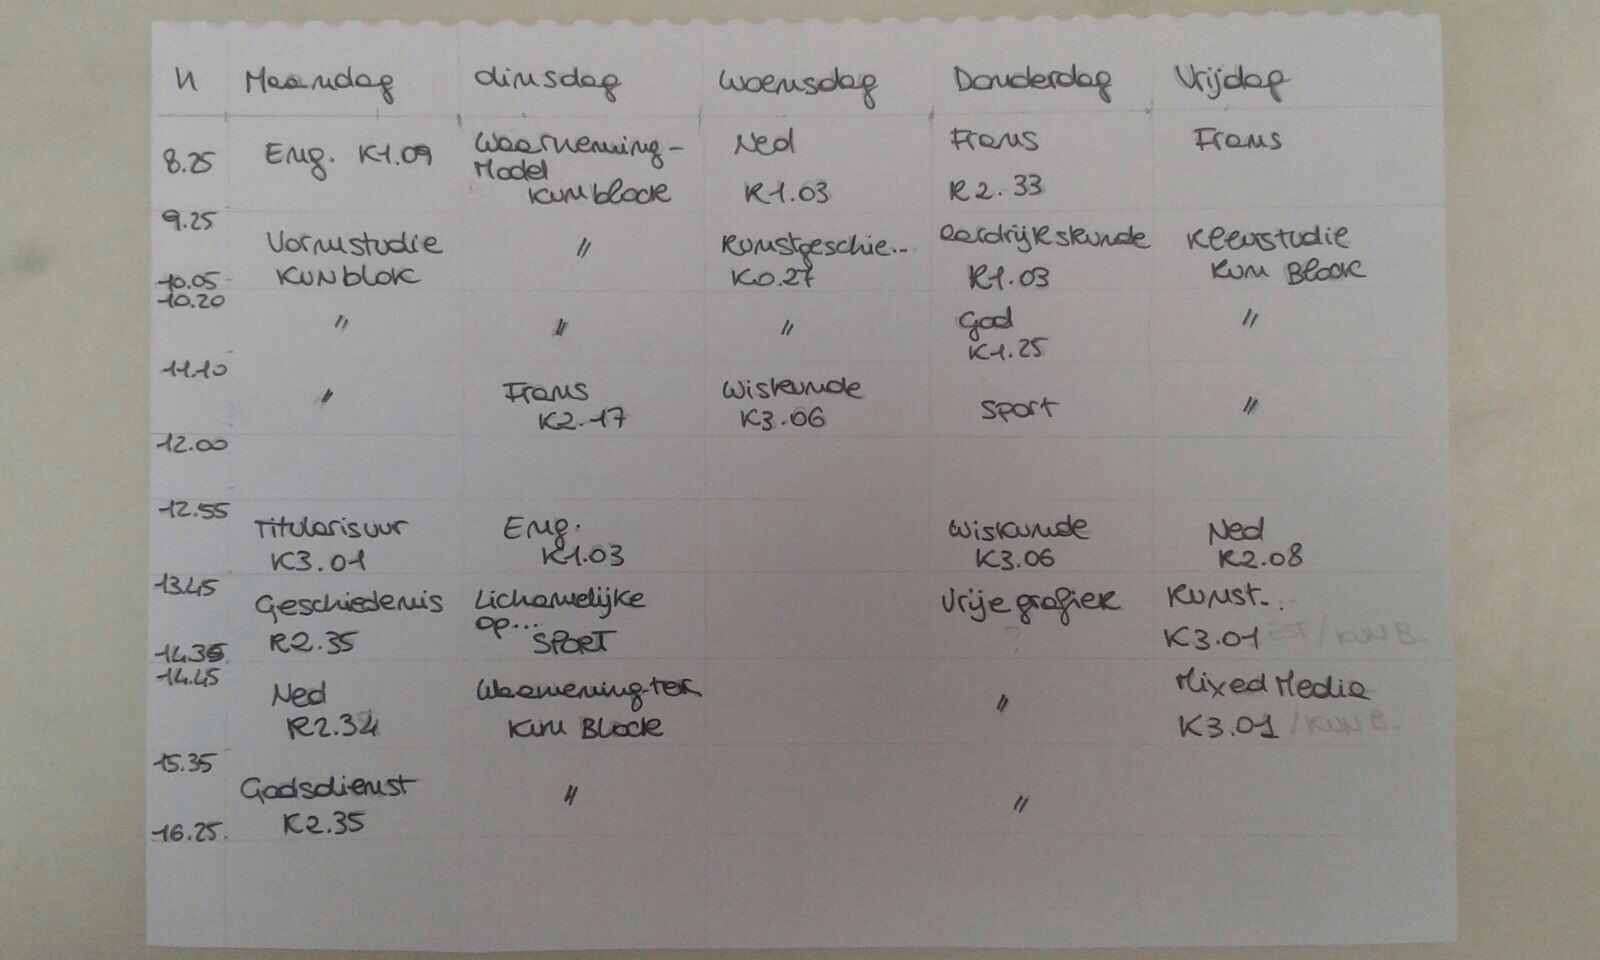 U Maandag dinsdag Woensdag Donderdag Vrijdag
8.25 Eng. K1.09 Waarneming- Ned Frans Frans
Model
Kunblock K1.03 R2.33
9.25
Vormstudie " Kunstgeschie... aardrijkskunde Kleurstudie
KUNblok K0.27 R1.03 Kun Block
10.05
10.20
" " " God "
K1.25
11.10
" Frans Wiskunde Sport "
K2.17 K3.06
12.00
12.55
Titularisuur Eng. Wiskunde Ned
K3.01 K1.03 K3.06 R2.08
13.45
Geschiedenis Lichamelijke Vrije grafiek Kunst...
op...
R2.35 SPORT ? K3.01 /KUN B.
14.35
14.45
Ned Waarneming-tek " Mixed Media
R2.34 Kun Block K3.01 /KUN B.
15.35
Godsdienst " "
K2.35
16.25.